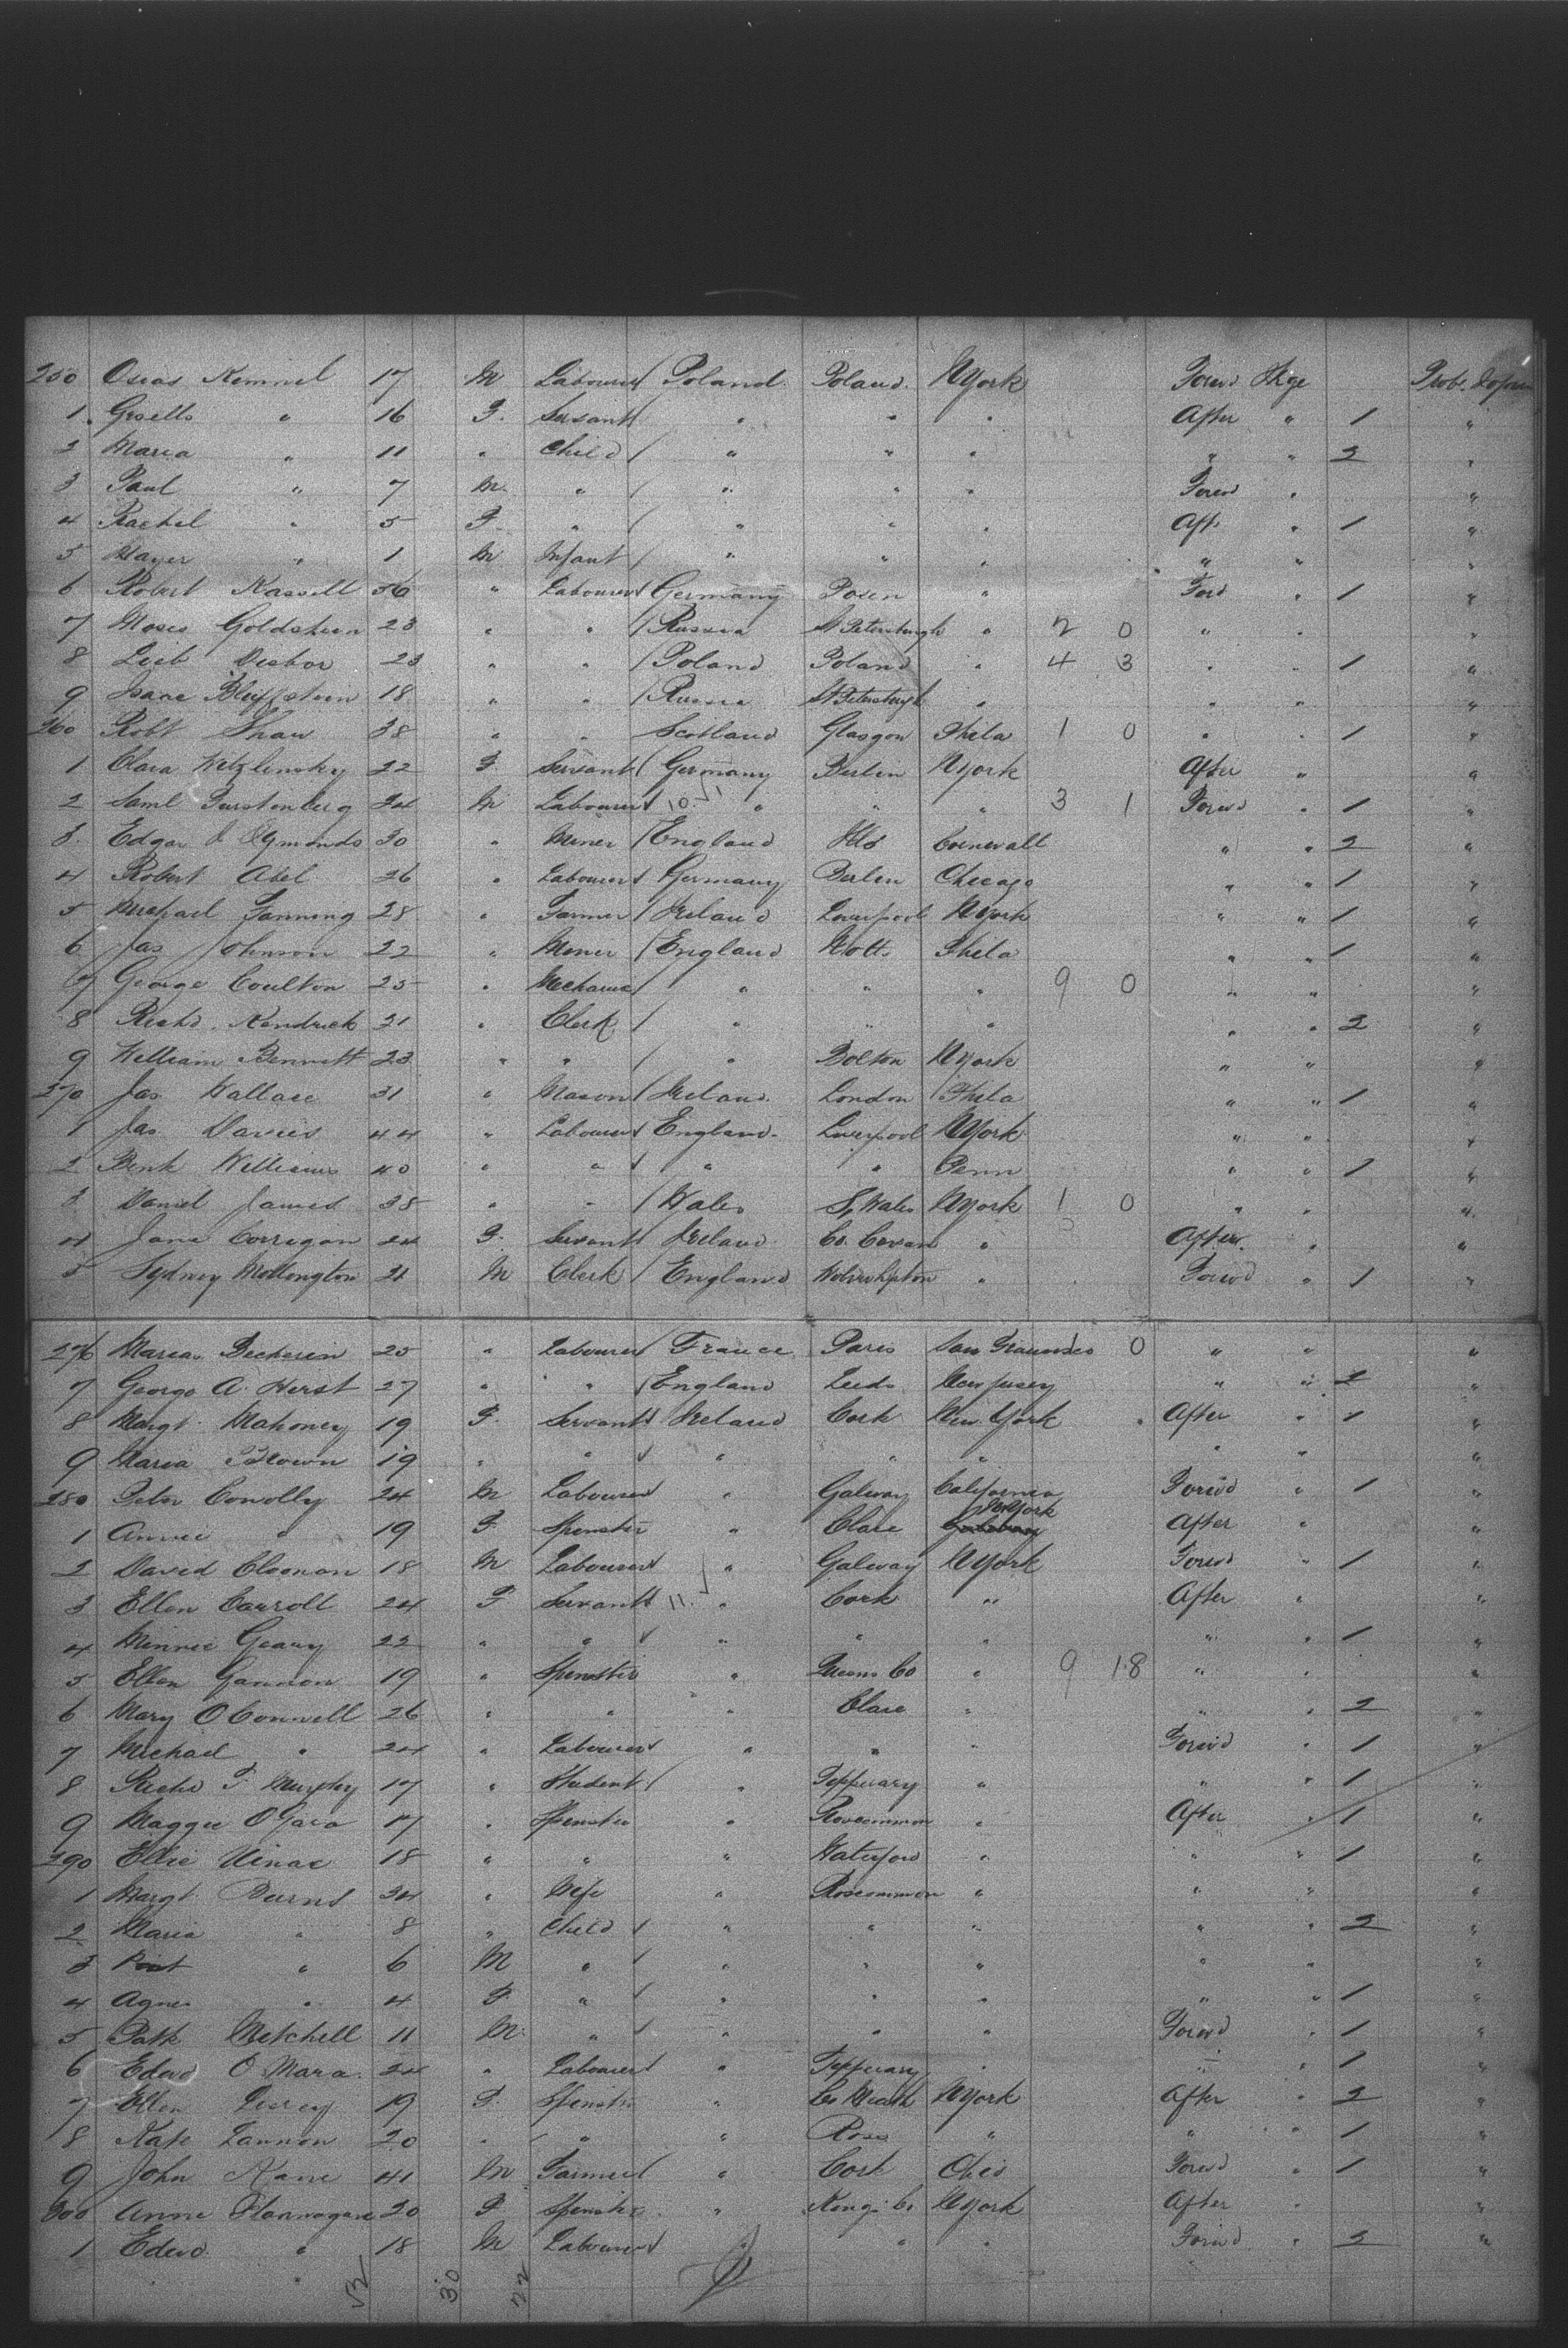 250 Osias Kemmel 17 M Labourer / Poland Poland NYork Forwd Stge Prob.
1 Gisella " 16 F. Servant / " " " After " 1 "
2 Maria " 11 " Child / " " " " " 2 "
3 Paul " 7 M. " / " " " Forwd " "
4 Rachel " 5 F. " / " " " Aft " 1 "
5 Mayer " 1 M Infant / " " " " " "
6 Robert Kassell 36 " Labourer / Germany Posen " Ford " 1 "
7 Moses Goldstein 23 " " / Russia St Petersburgh " 2 0 " " "
8 Leib 23 " " / Poland Poland " 4 3 " " 1 "
9 Isaac Bluffstein 18 " " / Russia St Petersburgh " " " "
260 Robt Shaw 38 " " Scotland Glasgow Phila 1 0 " " 1 "
1 Clara Witzlinsky 22 F. Servant / Germany Berlin NYork After " "
2 Saml Furstenberg 24 M Labourer / 10 " " " 3 1 Forwd " 1 "
3 Edgar J Symonds 30 " Miner / England Cornwall " " 2 "
4 Robert Abel 26 " Labourer / Germany Berlin Chicago " " 1 "
5 Michael Fanning 28 " Farmer / Ireland Liverpool NYork " " 1 "
6 Jas Johnson 22 " Miner / England Notts Phila " " 1 "
7 George Coulton 25 " Mechanic / " " " 9 0 " " "
8 Richd Kendrick 21 " Clerk / " " " " " 2 "
9 William Bennett 23 " " / " Bolton NYork " " "
270 Jas Wallace 31 " Mason / Ireland London Phila " " 1 "
1 Jas Davies 44 " Labourer / England Liverpool NYork " " "
2 Benk Williams 40 " " / " " Penn " " 1 "
3 Daniel James 38 " " / Wales S, Wales NYork 1 0 " " "
4 Jane Corrigan 24 F. Servant / Ireland Co. Cavan " After " "
5 Sydney Mollongton 21 M Clerk / England Wolverhpton " Forwd " 1 "
276 Marcas Becherin 25 " Labourer / France Paris San Francisco 0 " " "
7 George A. Herst 27 " " / England Leeds New Jersey " " 2 "
8 Margt Mahoney 19 F. Servant / Ireland Cork New York After " 1 "
9 Maria Brown 19 " " / " " " " " "
280 Peter Conolly 24 M Labourer / " Galway California Forwd " 1 "
1 Annie " 19 F Spinster " Clare NYork After " "
2 David Cloonan 18 M Labourer / " Galway NYork Forwd " 1 "
3 Ellen Carroll 24 F Servant / 11 " Cork " After " "
4 Minnie Geary 22 " " / " " " " " 1 "
5 Ellen Gannon 19 " Spinster " Queens Co " 9 18 " " "
6 Mary O Connell 26 " " " Clare " " " 2 "
7 Michael " 24 " Labourer / " " " Forwd " 1 "
8 Richd F Murphy 17 " Student / " Tipperary " " " 1 "
9 Maggie O Gara 17 " Spinster " Roscommon " After " 1 "
290 Ellie 18 " " " Waterford " " " 1 "
1 Margt Burns 34 " Wife " Roscommon " " " "
2 Maria " 8 " Child / " " " " " 2 "
3 " 6 M " / " " " " " "
4 Agnes " 4 F. " / " " " " " 1 "
5 Patk Mitchell 11 M. " / " " " Forwd " 1 "
6 Edwd O Mara 24 " Labourer / " Tipperary " " " 1 "
7 Ellen 19 F. Spinster " Co Meath NYork After " 2 "
8 Kate Lannon 20 " " " Ross " " " 1 "
9 John Kane 41 M Farmer / " Cork Ohio Forwd " 1 "
300 Anne Flannagan 20 F. Spinster " Kings Co NYork After " "
1 Edwd " 18 M Labourer / " " " Forwd " 2 "
52 30 22